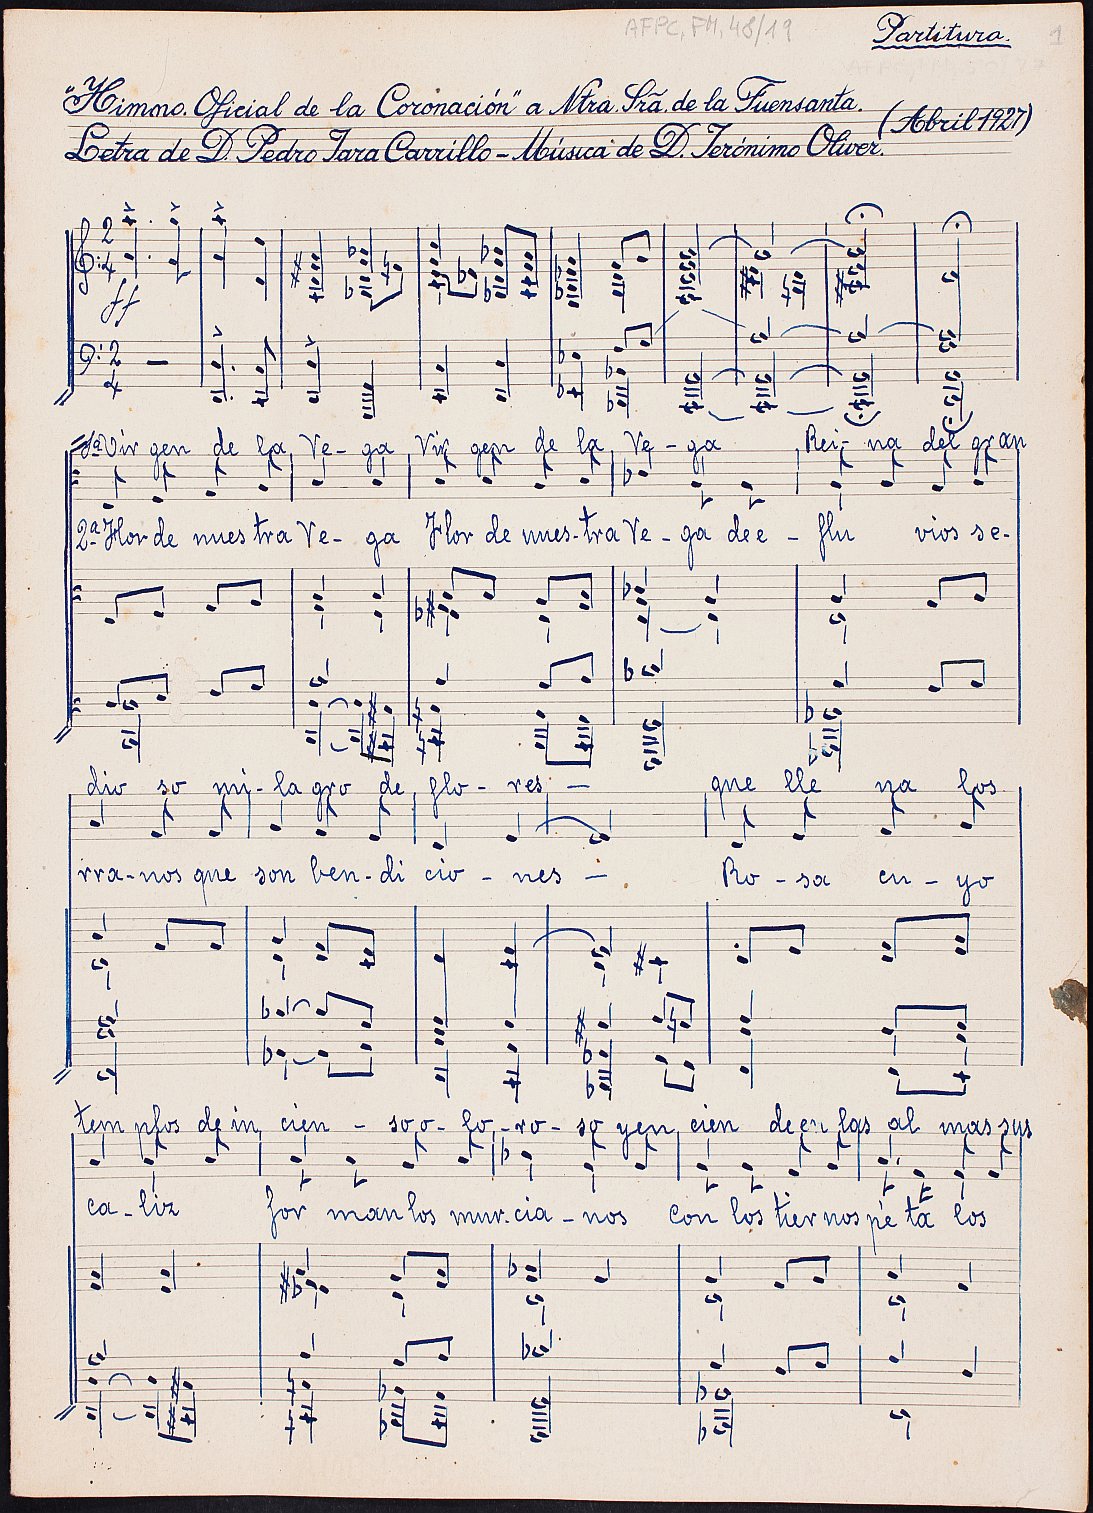 AFPC, FM, 48/19
Partitura.
1
"Himno. Oficial de la Coronación" a Ntra. Srã. de la Fuensanta.
(Abril 1927)
Letra de D. Pedro Jara Carrillo - Música de D. Jerónimo Oliver.
2 4
ff
2 4
1ª Vir gen de la Ve - ga Vir gen de la Ve - ga Rei - na del gran
2ª Flor de nues tra Ve - ga Flor de nues - tra Ve - ga de e - flu vios se -
dio so mi - la gro de flo - res -
que lle na los
rra - nos que son ben - di cio - nes -
Ro - sa cu - yo
tem plos de in cien - so o - lo - ro - so y en cien de en las al mas sus
ca - liz for man los mur - cia - nos con los tier nos pé ta los